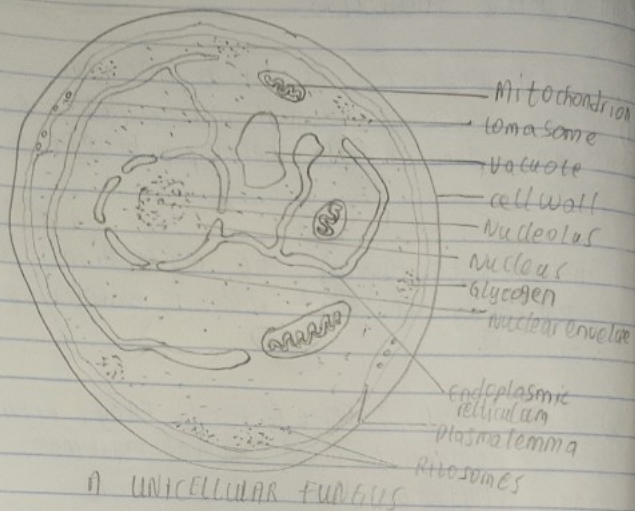 Mitochondrion
Lomasome
Vacuole
cell wall
Nucleolus
Nucleus
Glycogen
Nuclear envelae
Endoplasmic
relliculum
Plasmalemma
Ribosomes
A UNICELLULAR FUNGUS